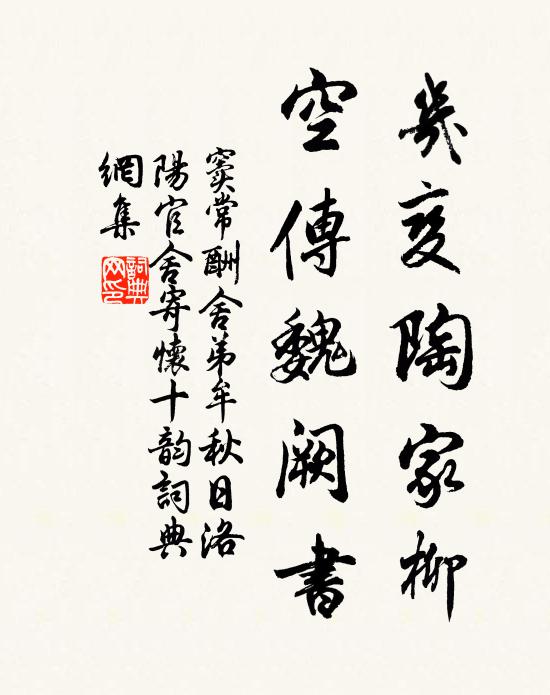 幾变陶家柳
空傳魏阙書
窦常酬舍弟牟秋日洛
陽官舍寄懷十韵詞典
網集
詞典網印